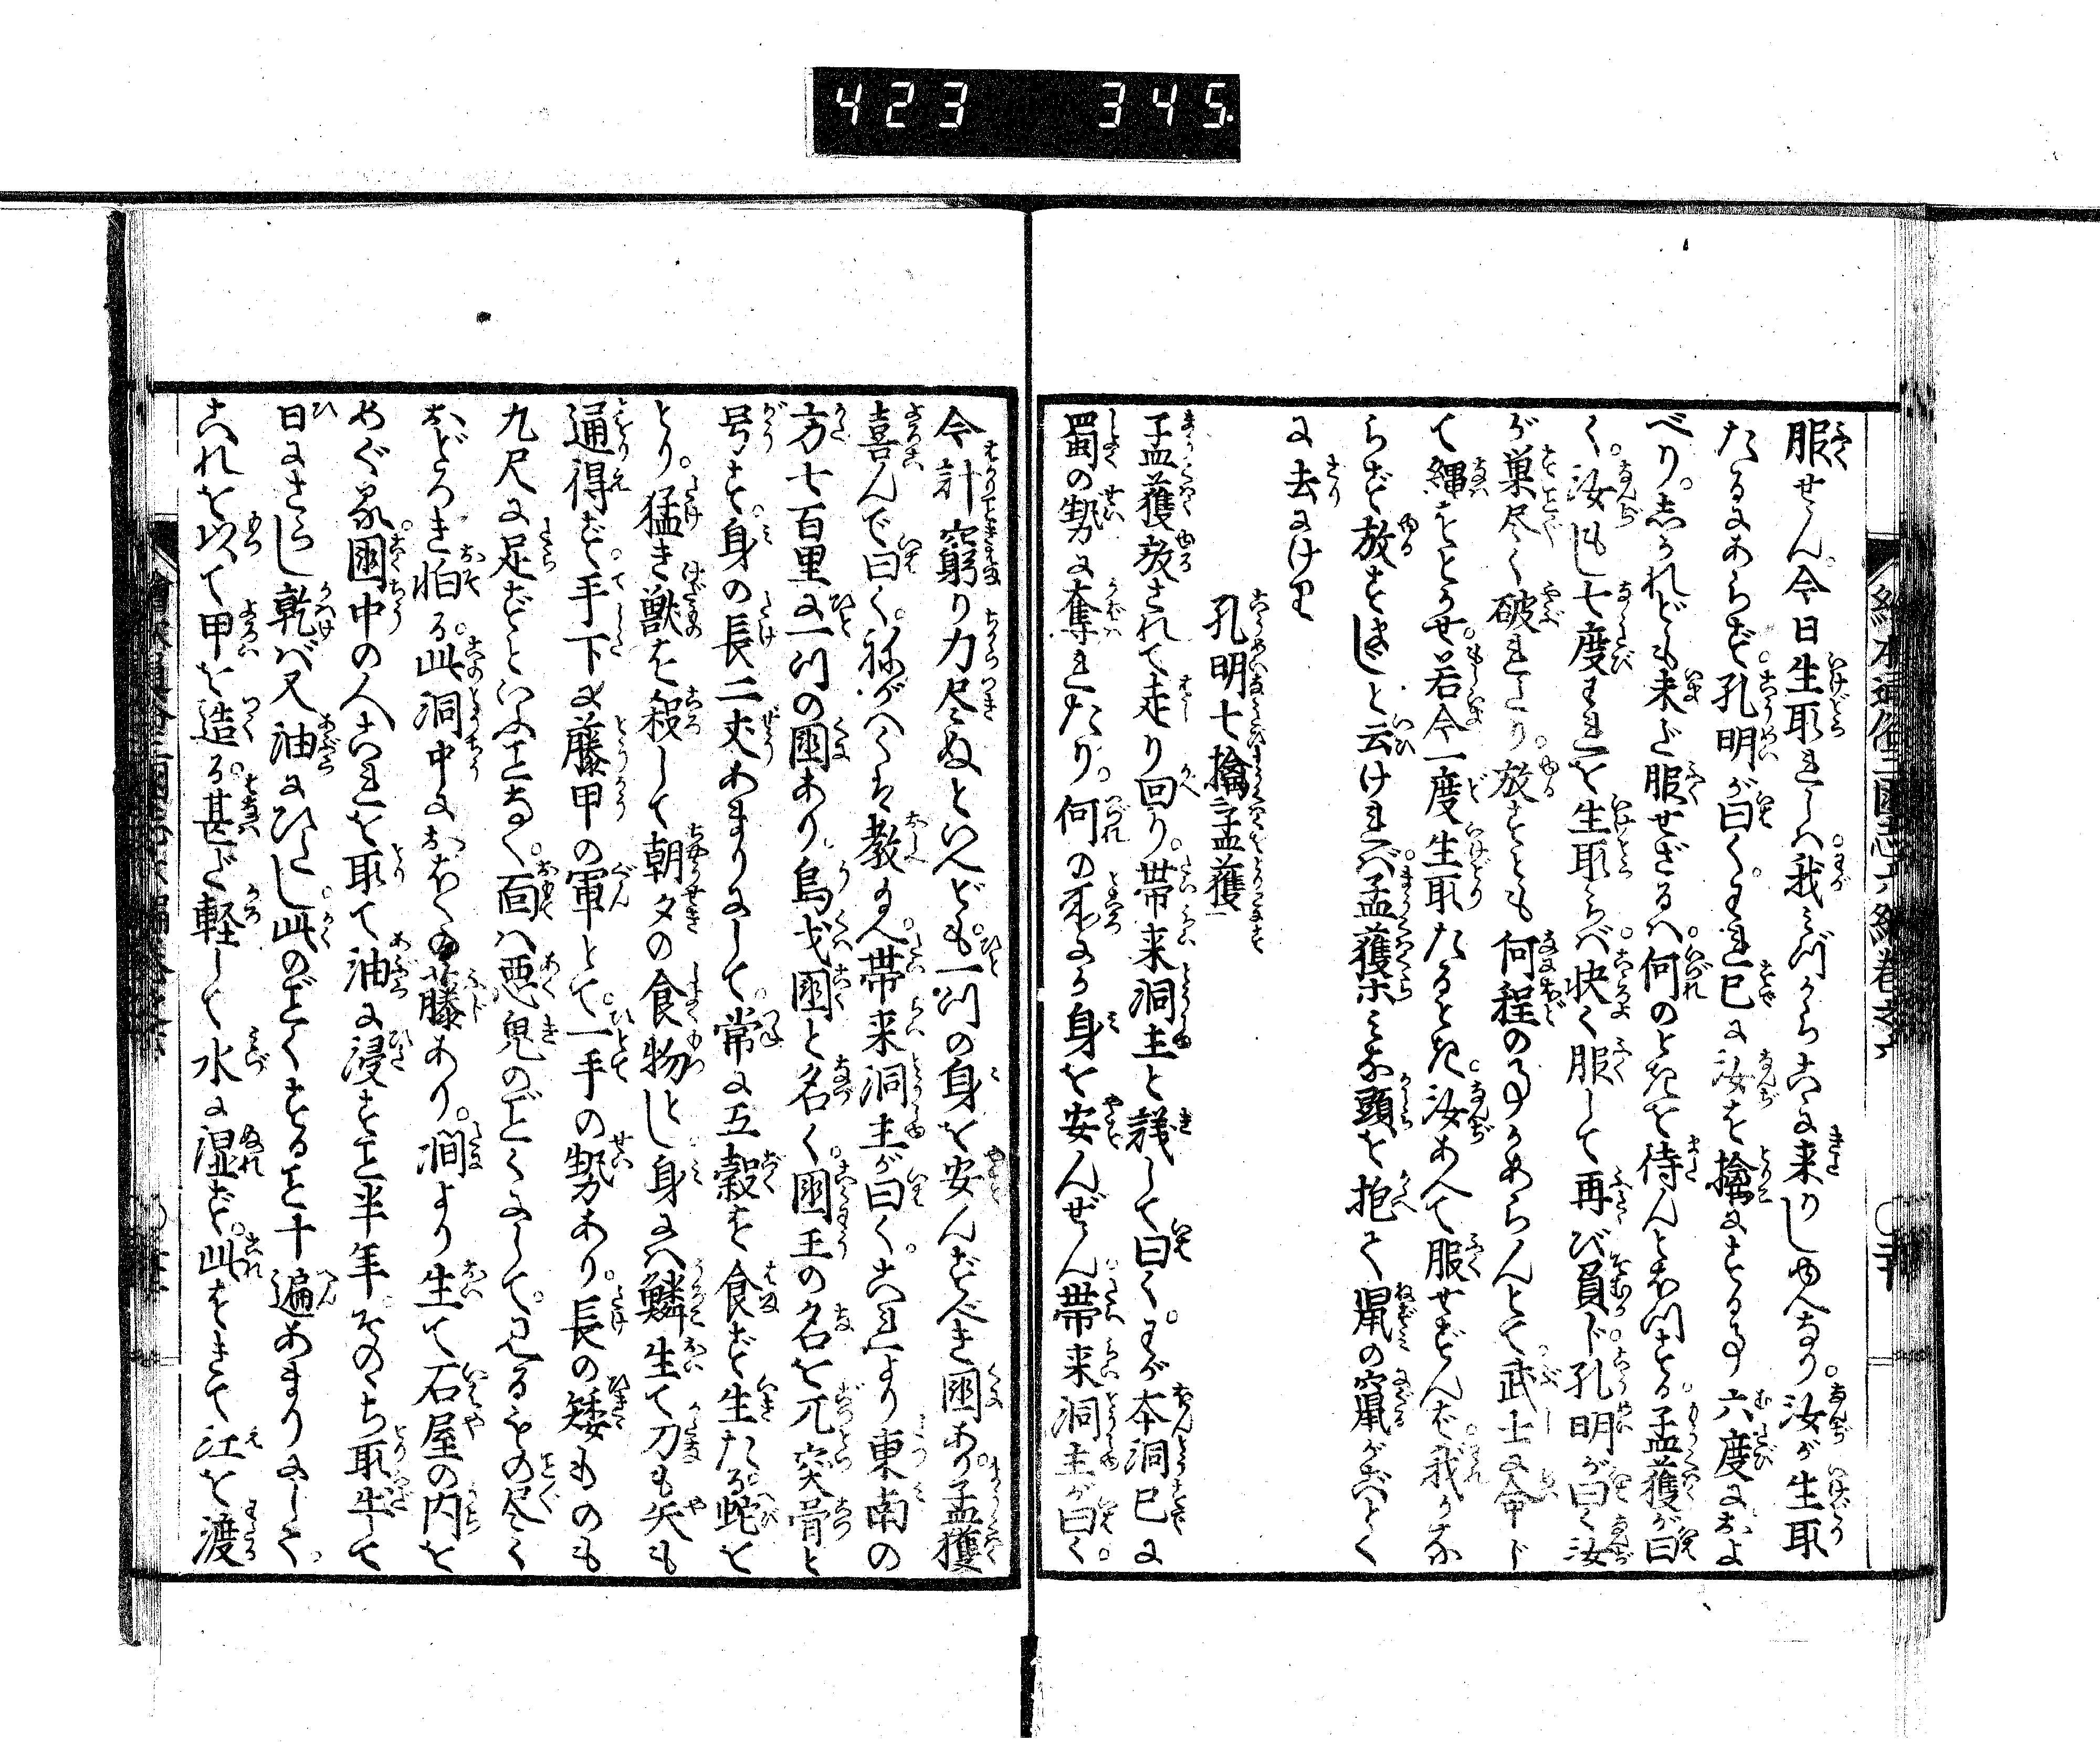 423 345.
繪本通俗三國志六編巻之六
服せん。今日生取れしハ。我みづからこゝに来りしゆへなり。汝が生取
たるにあらず。孔明が曰く。われ已に汝を擒にする事六度におよ
べり。しかれども未だ服せざるハ。何のときを待んとおもひする。孟獲が曰
く。汝もし七度われを生取らバ。快く服して再び負かじ。孔明が曰く汝
が巣尽く破れたり。放すとも何程の事かあらんとて武士に命じ
て縄をとかせ。若今一度生取たるとき。汝あへて服せずんば。我かな
らず放すまじと云けれバ。孟獲等みな頭を抱へて鼠の竄がごとく
に去にけり
孔明七擒孟獲
孟獲放されて走り回り。帯来洞主と議して曰く。わが本洞已に
蜀の勢に奪れたり。何の所にか身を安んぜん帯来洞主が曰く。
今計窮り力尽ぬといへども。一つの身を安んずべき国あり。孟獲
喜んで曰く。ねがハくハ教よ。帯来洞主が曰く。これより東南の
方七百里に一つの国あり。烏戈国と名く。国王の名を兀突骨と
号す。身の長二丈あまりにして。常に五穀を食ず生たる蛇を
とり。猛き獣を殺して朝夕の食物とし身にハ鱗生て刀も矢も
通得ず。手下に藤甲の軍とて。一手の勢あり。長の矮ものも
九尺に足ずといふことなく。面ハ悪鬼のごとくにして。見るもの尽く
おどろき怕る。此洞中におほくの藤あり。澗より生て石屋の内を
めぐる。国中の人これを取て油に浸すこと半年。そのゝち取出て
日にさらし乾バ又油にひたし。此のごとくすること十遍あまりにして。
これを以て甲を造る。甚だ軽して水に湿ず。此をきて江を渡